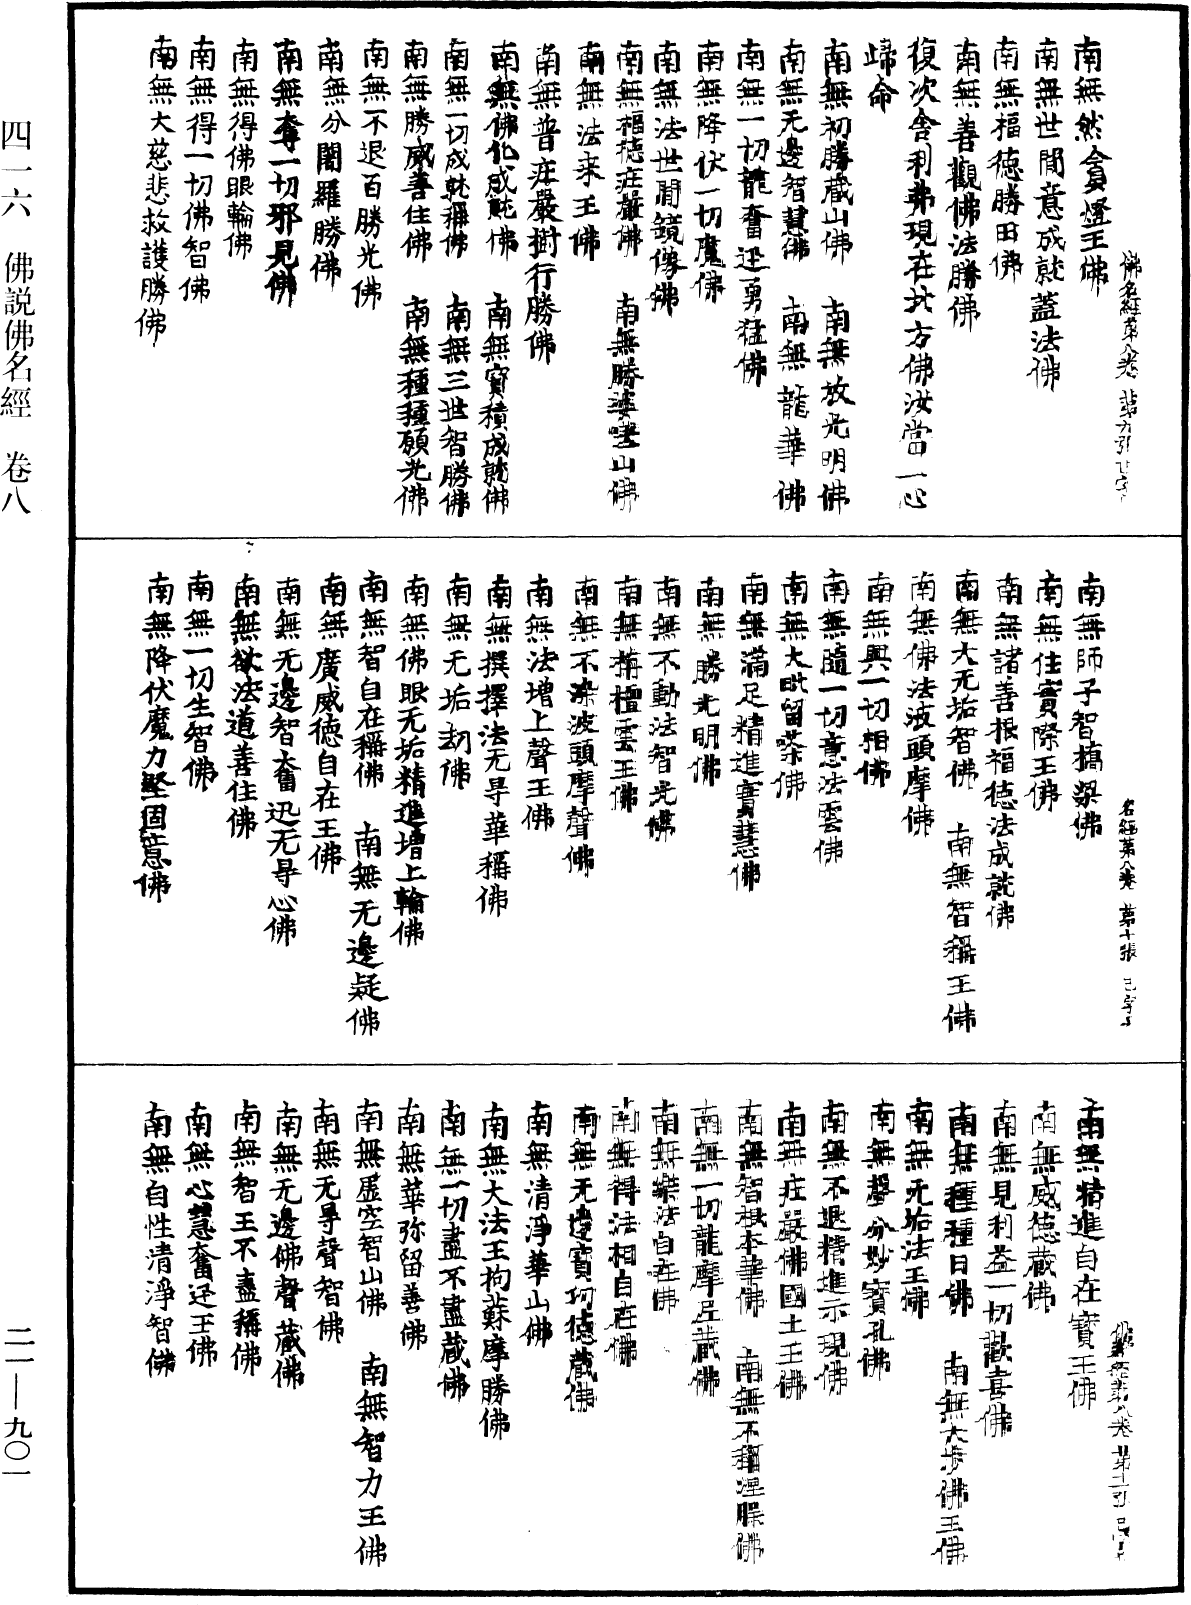 四一六　佛説佛名經　卷八
二一—九〇一
佛名經第八卷　第九張　已字
南無然燈王佛
南無世間意成就蓋法佛
南無福德勝田佛
南無善觀佛法勝佛
復次舍利弗現在北方佛汝當一心
歸命
南無初勝藏山佛　南無放光明佛
南無无邊智慧佛　南無龍華佛
南無一切龍奮迅勇猛佛
南無降伏一切魔佛
南無法世間鏡像佛
南無福德莊嚴佛　南無勝婆嗟山佛
南無法來王佛
南無普莊嚴樹行勝佛
南無佛化成就佛　南無寶積成就佛
南無一切成就稱佛　南無三世智勝佛
南無勝威善住佛　南無種種願光佛
南無不退百勝光佛
南無分闍羅勝佛
南無奪一切邪見佛
南無得佛眼輪佛
南無得一切佛智佛
南無大慈悲救護勝佛
名經第八卷　第十張　已字
南無師子智橋梁佛
南無住實際王佛
南無諸善根福德法成就佛
南無大无垢智佛　南無智稱王佛
南無佛法波頭摩佛
南無興一切相佛
南無隨一切意法雲佛
南無大毗留荼佛
南無滿足精進寶慧佛
南無勝光明佛
南無不動法智光佛
南無栴檀雲王佛
南無不染波頭摩聲佛
南無法增上聲王佛
南無撰擇法无㝵華稱佛
南無无垢劫佛
南無佛眼无垢精進增上輪佛
南無智自在稱佛　南無无邊疑佛
南無廣威德自在王佛
南無无邊智奮迅无㝵心佛
南無欲法道善住佛
南無一切生智佛
南無降伏魔力堅固意佛
佛名經第八卷　第十一張　已字
南無精進自在寶王佛
南無威德藏佛
南無見利益一切歡喜佛
南無種種日佛　南無大步佛王佛
南無无垢法王佛
南無聲分妙寶孔佛
南無不退精進示現佛
南無莊嚴佛國土王佛
南無智根本華佛　南無不稱涅槃佛
南無一切龍摩尼藏佛
南無樂法自在佛
南無得法相自在佛
南無无邊寶功德藏佛
南無清淨華山佛
南無大法王拘蘇摩勝佛
南無一切盡不盡藏佛
南無華弥留善佛
南無虛空智山佛　南無智力王佛
南無无㝵聲智佛
南無无邊佛聲藏佛
南無智王不盡稱佛
南無心慧奮迅王佛
南無自性清淨智佛